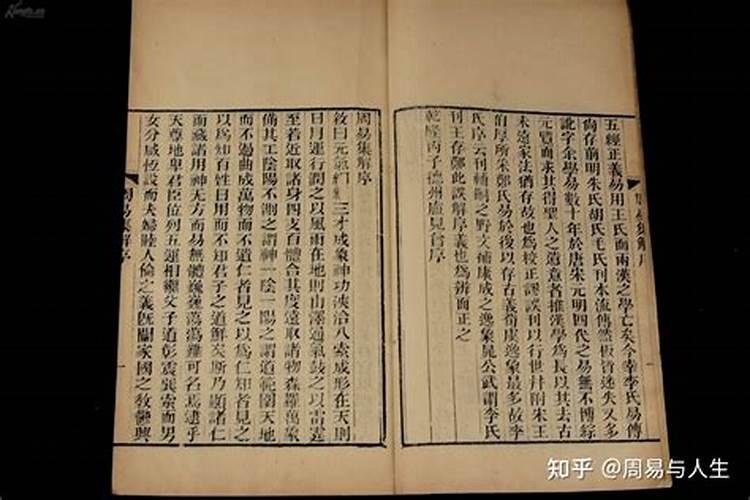 五經正義易用王氏而兩漢之學亡矣今幸李氏易傳
尚存前明朱氏胡氏毛氏刊本流傳然板皆迷失又多
訛字余學易數十年於唐宋元明四代之易無不博綜
元覽而求其得聖人之遺意者推漢學為長以其去古
未遠家法猶存故也為校正謬誤刊以行世并附朱王
伯厚所朱鄭氏易於後以存古義荀虞逸象最多故李
氏序云刊輔嗣之野文補康成之逸象晁公武謂李氏
刊王存鄭此誤解序義也為辨而正之
乾隆丙子德州盧見曾序
周易集解序
周易集解序
敘曰元氣絪縕三才成象神功浹洽八索成形在天則
日月運行潤之以風雨在地則山澤通氣鼓之以雷霆
至若近取諸身四支百體合其度遠取諸物森羅萬象
備其工陰陽不測之謂神一陰一陽之謂道範圍天地
而不過曲成萬物而不遺仁者見之以為仁知者見之
以為知百姓日用而不知君子之道鮮矣斯乃顯諸仁
而藏諸用神无方而易無體巍巍蕩蕩難可名焉逮乎
天尊地卑君臣位列五運相繼父子道彰震巽索而男
女分咸恆設而夫婦睦人倫之義既闡家國之教鬱興
周易集解序
知乎 @周易与人生